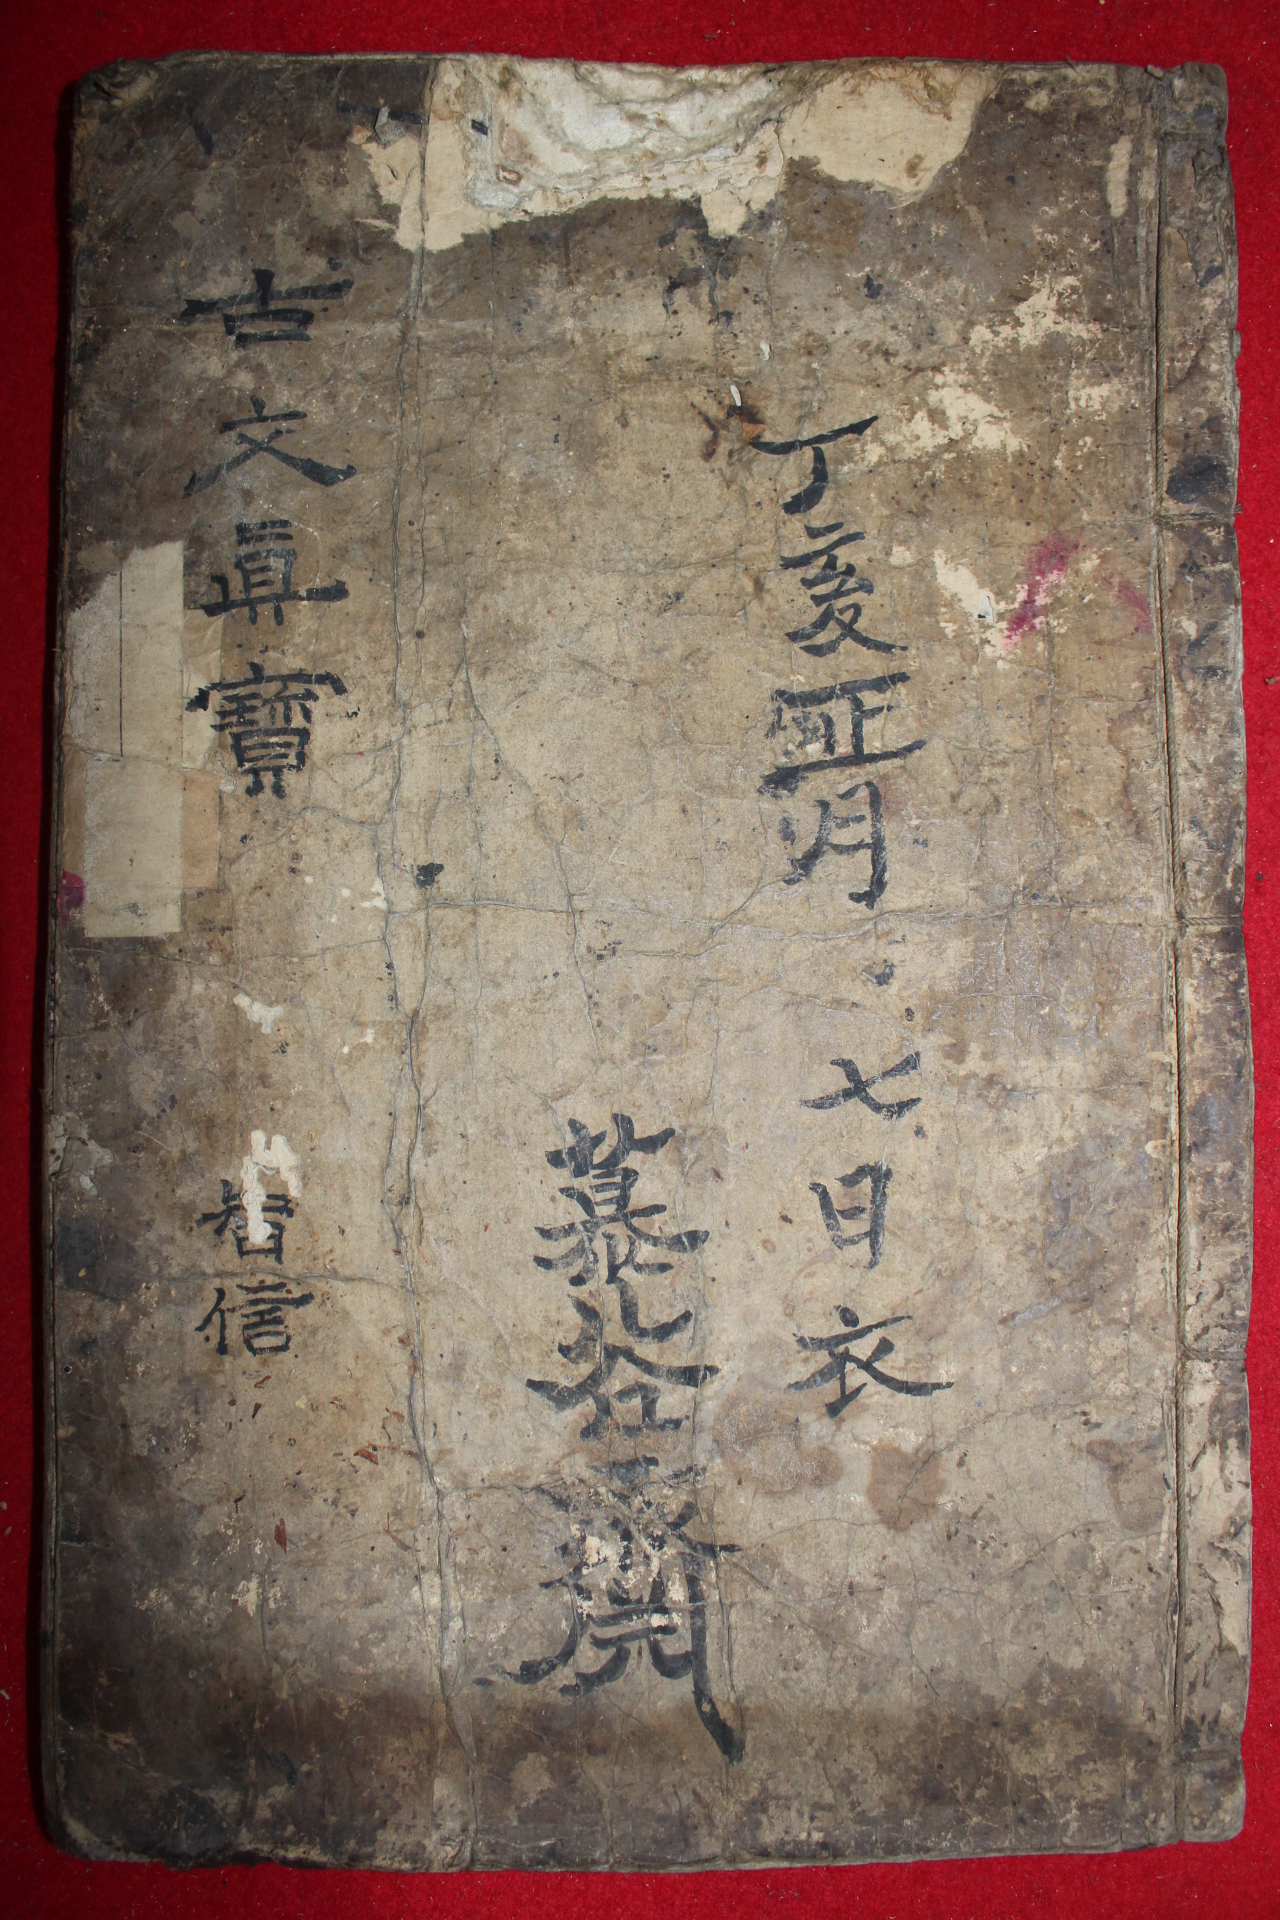 丁亥正月 七日衣
慕谷齋
古文眞寶 智信